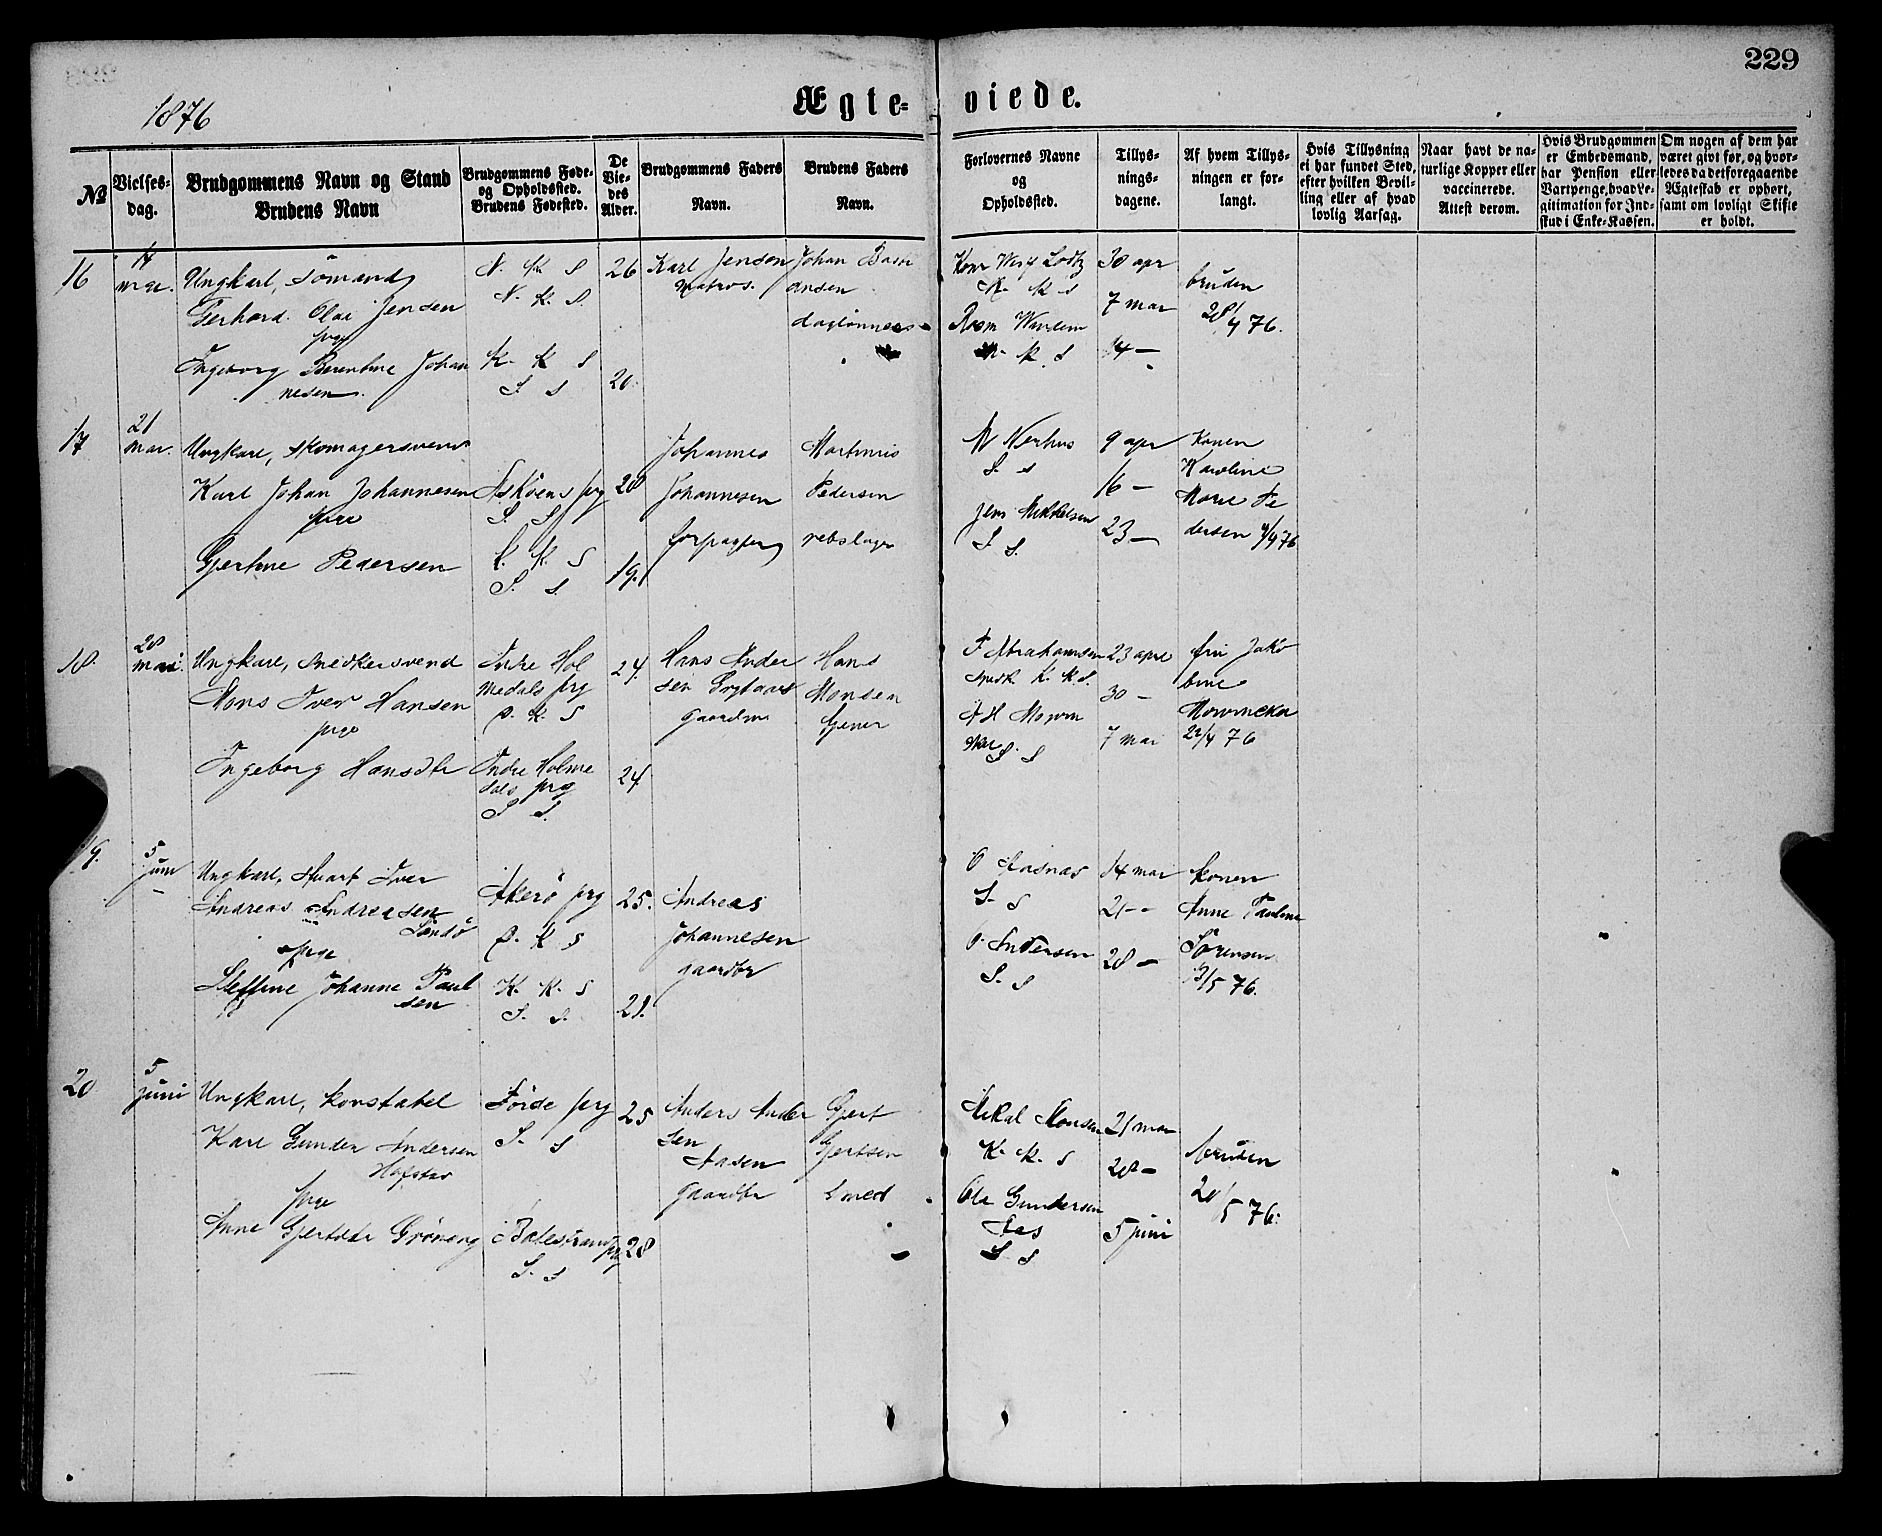 229
1876
Ægte- viede.
№
Vielses-
dag.
Brudgommens Navn og Stand
Brudens Navn
Brudgommens Føde-
og Opholdssted.
Brudens Fødested.
De
Vie-
des
Alder.
Brudgommens Faders
Navn.
Brudens Faders
Navn.
Forlovernes Navne
og
Opholdssted.
Tillys-
nings-
dagene.
Af hvem Tillys-
ningen er for-
langt.
Hvis Tillysning
ei har fundet Sted,
efter hvilken Bevil-
ling eller af hvad
lovlig Aarsag.
Naar havt de na-
turlige Kopper eller
vaccinerede.
Attest derom.
Hvis Brudgommen
er Embedsmand,
har Pension eller
Vartpenge, hvad Le-
gitimation for Ind-
skud i Enke-Kassen.
Om nogen af dem har
været givt før, og hvor-
ledes da det foregaaende
Ægteskab er ophørt,
samt om lovligt Skifte
er holdt.
16
14
mai.
Ungkarl, Sömand
Gerhard Olai Jensen
pige
Ingeborg Berentine Johan
nesen
N. K. S
N. K. S.
K. K. S
S. S
26
20.
Karl Jensen
Matros.
Johan
ansen
daglönner
N. K. S
30 apr
7 mai
14 —
bruden
28/4 76.
17
21
mai.
Ungkarl, Skomagersvend
Karl Johan Johannesen
pige
Gjertine Pedersen
Askøens prg
S. S
K. K. S
S. S.
28
19.
Johannes
Johannesen
forpagter
Martinus
Pedersen
rebslager
M Nerhus
S. S
Jens Mikkelsen
S S.
9 apr
16 —
23 —
Konen
Karoline
Marie Pe
dersen 4/4 76
18.
28
mai.
Ungkarl, Snedkersvend
Mons Iver Hansen
pige
Ingeborg Hansdtr
Indre Hol
medals prg
D. K. S
Indre Holme
dals prg
S S.
24.
24.
Hans Ander
sen
gaardm
Hans
Monsen
F Abrahamsen
Snedk. K. K. S.
S S
23 apr
30 —
7 mai
fru Jako
bine
22/4 76
19.
5
juni
Ungkarl, Iver
Andreas Andreasen
Sandö
pige
Steffine Johanne Paul
sen
Akerö prg
D. K. S
K. K. S
S. S.
25.
21.
Andreas
Johannesen
gaardbr
S. S
O. Andersen
S. S
14 mai
21 —
28 —
Konen
Anne Pauline
Sörensen
13/5 76.
20
5
juni
Ungkarl, Konstabel
Karl Gunder Andersen
Hafstad
pige
Anne Gjertsdtr Grönerg
Förde prg
S. S
Balestrand prg
S. S
25
28
Anders Ander
sen
Aasen
gaardbr
Gjert
Gjertsen
Smed
Mikal Monsen
K. K. S
Ola Gundersen
Aas
S. S
21 mai
28 —
5 juni
bruden
20/5 76.